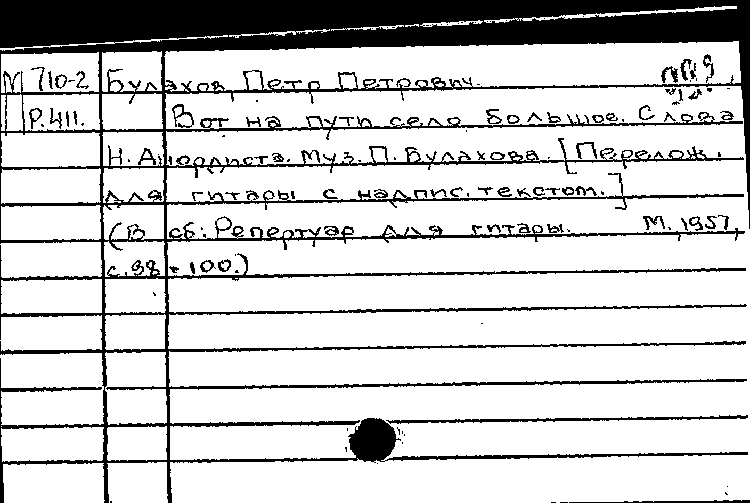 М 710-2 Булахов, Петр Петрович.
Р.411. Вот на пути село большое. Слова
Н. Анордиста. Муз. П. Булахова. [Перелож.
для гитары с надпис. текстом.]
(В сб: Репертуар для гитары. М., 1957,
с. 98-100.)